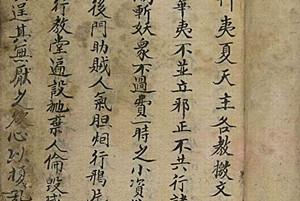 夷夏天主各教檄文
華夷不並立邪正不共行諸
斬妖衆不過費時之小資
後門助賊人氣胆炮行鴉片
行教堂遍設施棄人倫毀
逞其無厭之心以擾亂